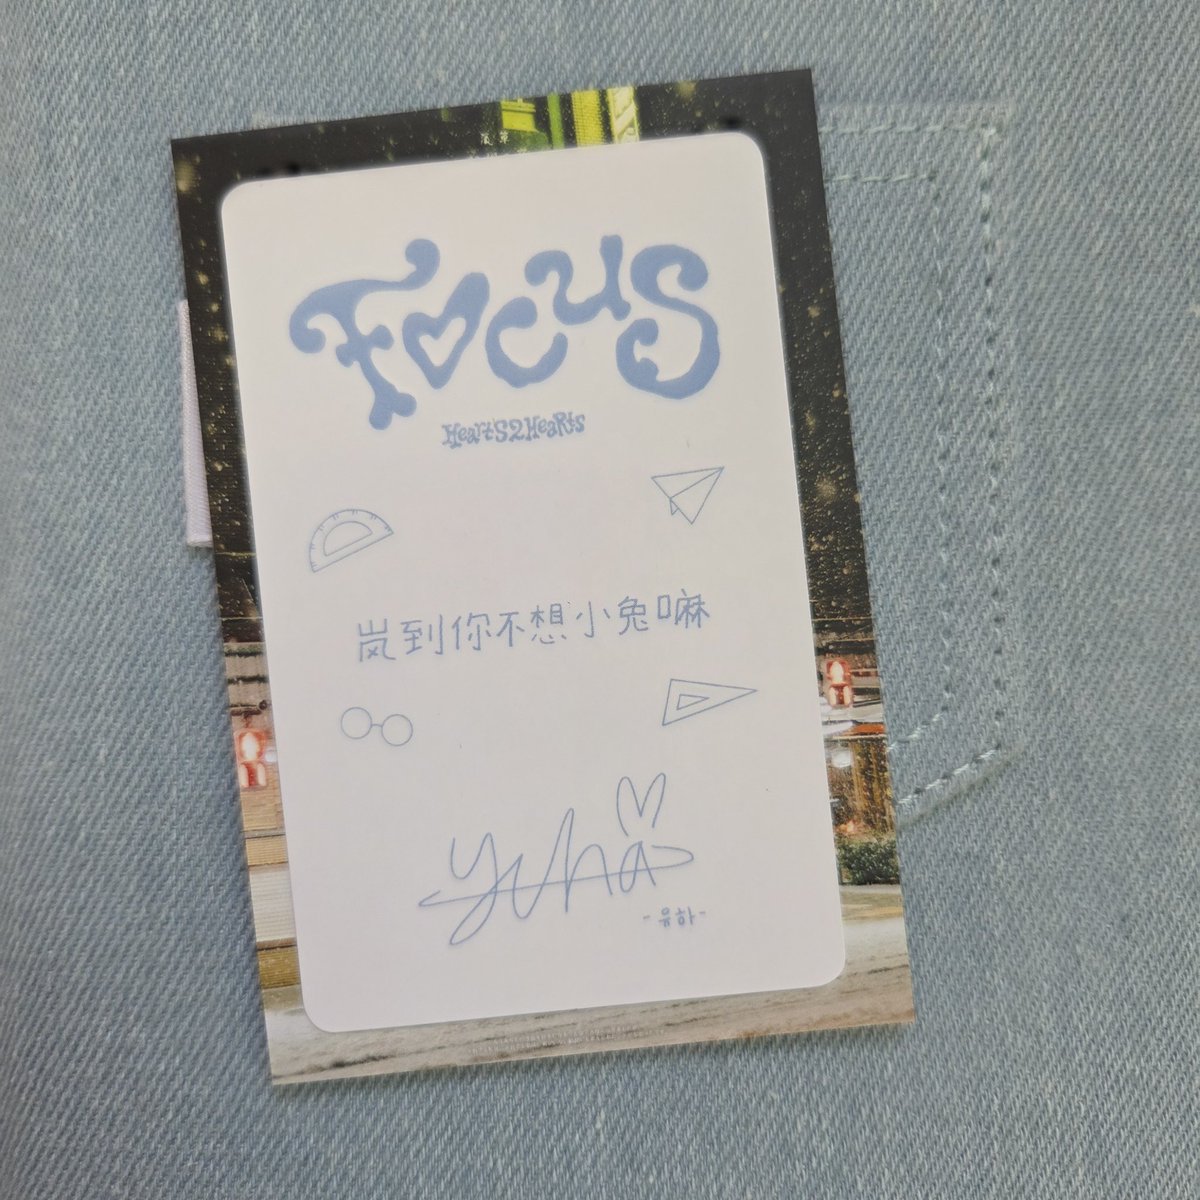 Focus
Hearts2Hearts
岚到你不想小兔嘛
yuha
-유하-